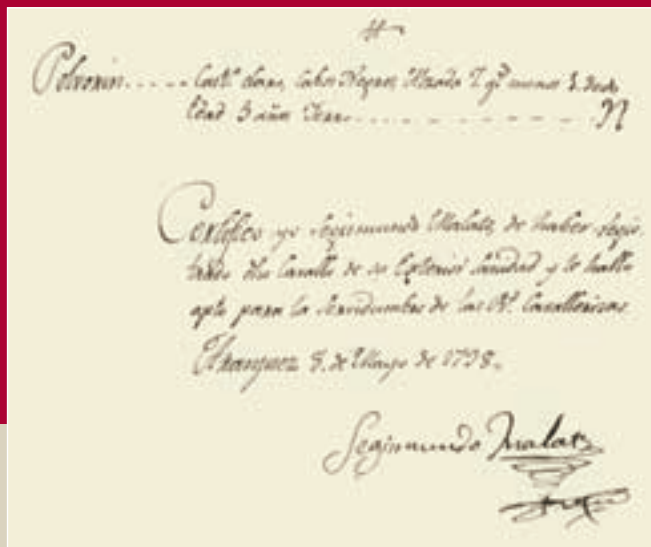 Polvorin..... Cast.º claro, cabos Negros, Alzada 7 q.s menos 1. dedo
Edad 5 años Yerro
Certifico yo Segismundo Malats, de haber regis
trado dho Cavallo de su Exterior Sanidad y le hallo
apto para la servidumbre de las R.s Cavallerizas
Aranjuez 8. de Mayo de 1798.
Segismundo Malats